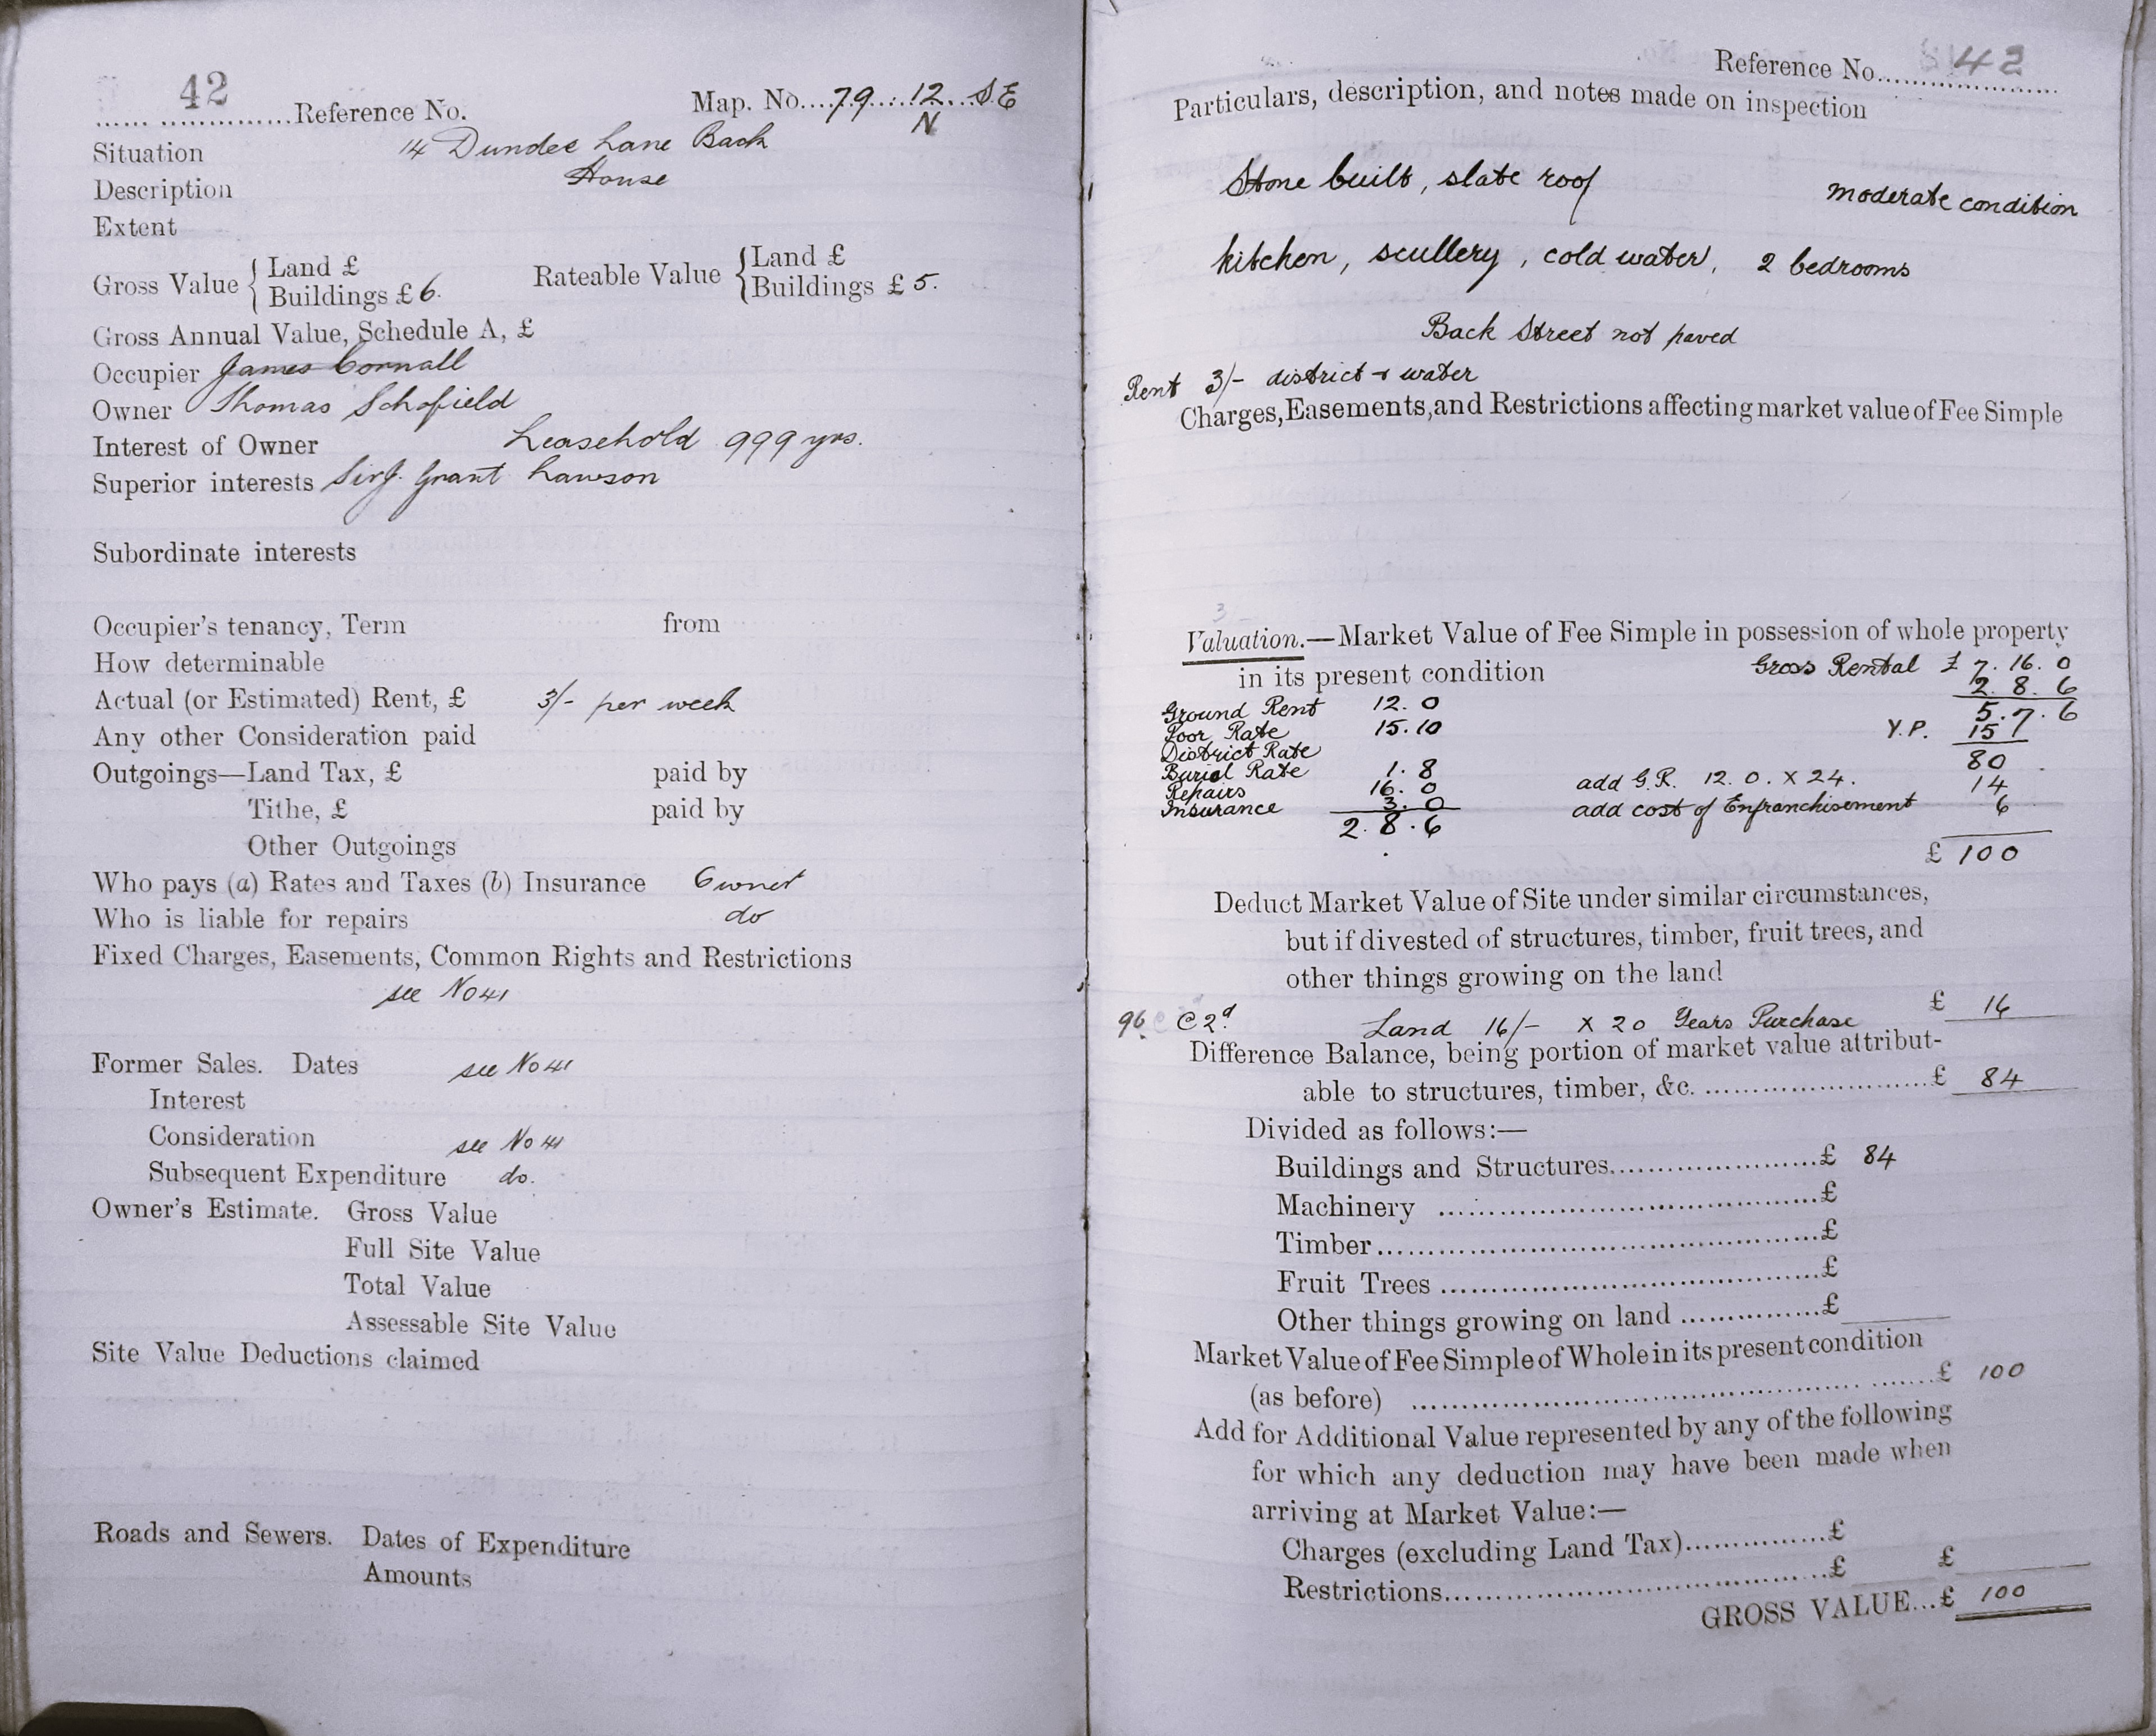 42
Reference No. Map. No. 79 12 S.E
N
Situation 14 Dundee Lane Back
Description House
Extent
Gross Value { Land £ Rateable Value { Land £
Buildings £ 6. Buildings £ 5.
Gross Annual Value, Schedule A, £
Occupier James Cornall
Owner Thomas Schofield
Interest of Owner Leasehold 999 yrs.
Superior interests Sir J. Grant Lawson
Subordinate interests
Occupier's tenancy, Term from
How determinable
Actual (or Estimated) Rent, £ 3/- per week
Any other Consideration paid
Outgoings—Land Tax, £ paid by
Tithe, £ paid by
Other Outgoings
Who pays (a) Rates and Taxes (b) Insurance Owner
Who is liable for repairs do
Fixed Charges, Easements, Common Rights and Restrictions
see No 41
Former Sales. Dates see No 41
Interest
Consideration see No 41
Subsequent Expenditure do.
Owner's Estimate. Gross Value
Full Site Value
Total Value
Assessable Site Value
Site Value Deductions claimed
Roads and Sewers. Dates of Expenditure
Amounts
Reference No. 42
Particulars, description, and notes made on inspection
Stone built, slate roof moderate condition
kitchen, scullery, cold water, 2 bedrooms
Back Street not paved
Rent 3/- district & water
Charges, Easements, and Restrictions affecting market value of Fee Simple
Valuation.—Market Value of Fee Simple in possession of whole property
in its present condition Gross Rental £ 7. 16. 0
2. 8. 6
Ground Rent 12. 0 5. 7. 6
Poor Rate 15. 10 Y.P. 15
District Rate
Burial Rate 1. 8 80
Repairs 16. 0 add G.R. 12. 0. X 24. 14
Insurance 3. 0 add cost of Enfranchisement 6
2. 8. 6
£ 100
Deduct Market Value of Site under similar circumstances,
but if divested of structures, timber, fruit trees, and
other things growing on the land
96 @ 2d Land 16/- X 20 Years Purchase £ 16
Difference Balance, being portion of market value attribut-
able to structures, timber, &c. £ 84
Divided as follows:—
Buildings and Structures £ 84
Machinery £
Timber £
Fruit Trees £
Other things growing on land £
Market Value of Fee Simple of Whole in its present condition
(as before) £ 100
Add for Additional Value represented by any of the following
for which any deduction may have been made when
arriving at Market Value:—
Charges (excluding Land Tax) £
Restrictions £ £
GROSS VALUE...£ 100